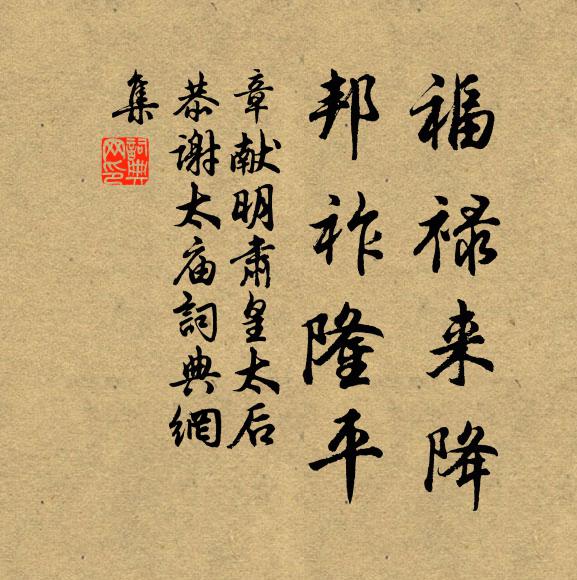 福禄来降
邦祚隆平
章献明肅皇太后
恭谢太庙詞典網
集
詞典
网印